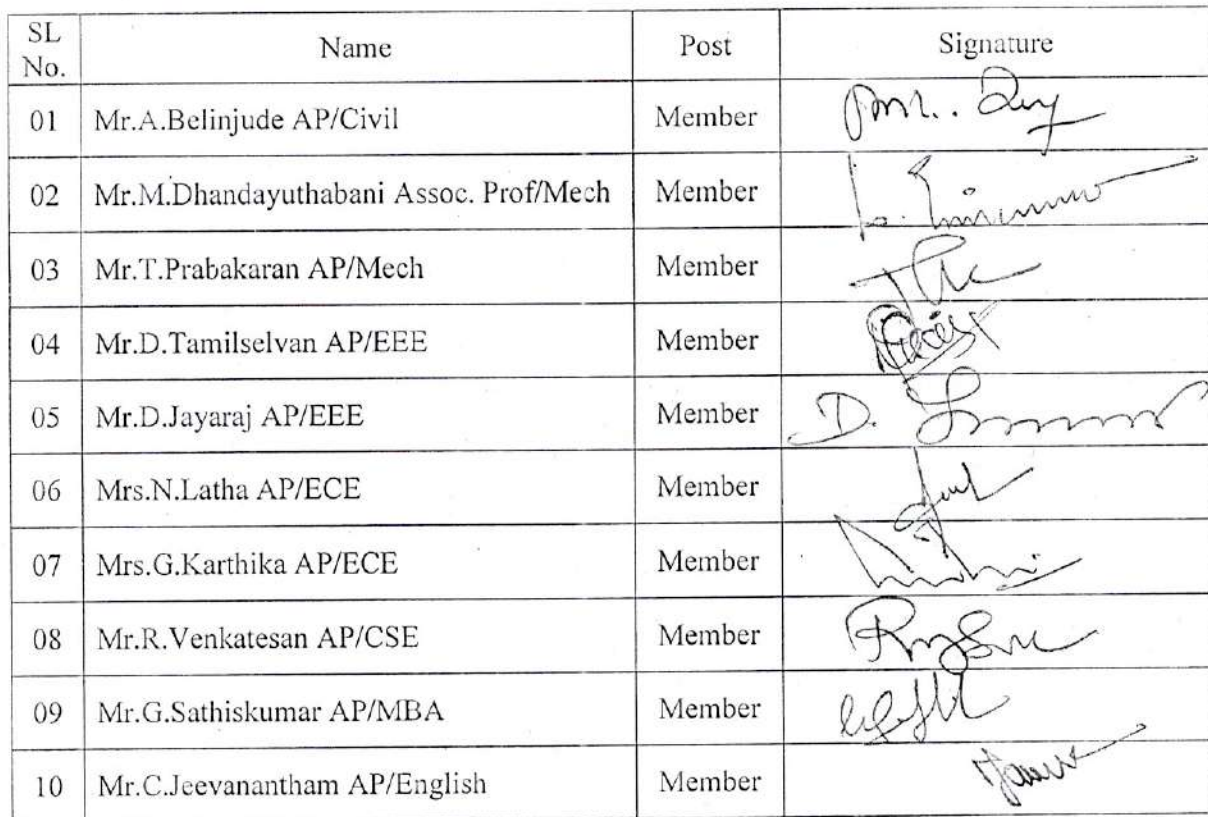 SL No. Name Post Signature
01 Mr.A.Belinjude AP/Civil Member
02 Mr.M.Dhandayuthabani Assoc. Prof/Mech Member
03 Mr.T.Prabakaran AP/Mech Member
04 Mr.D.Tamilselvan AP/EEE Member
05 Mr.D.Jayaraj AP/EEE Member D.
06 Mrs.N.Latha AP/ECE Member
07 Mrs.G.Karthika AP/ECE Member
08 Mr.R.Venkatesan AP/CSE Member
09 Mr.G.Sathiskumar AP/MBA Member
10 Mr.C.Jeevanantham AP/English Member